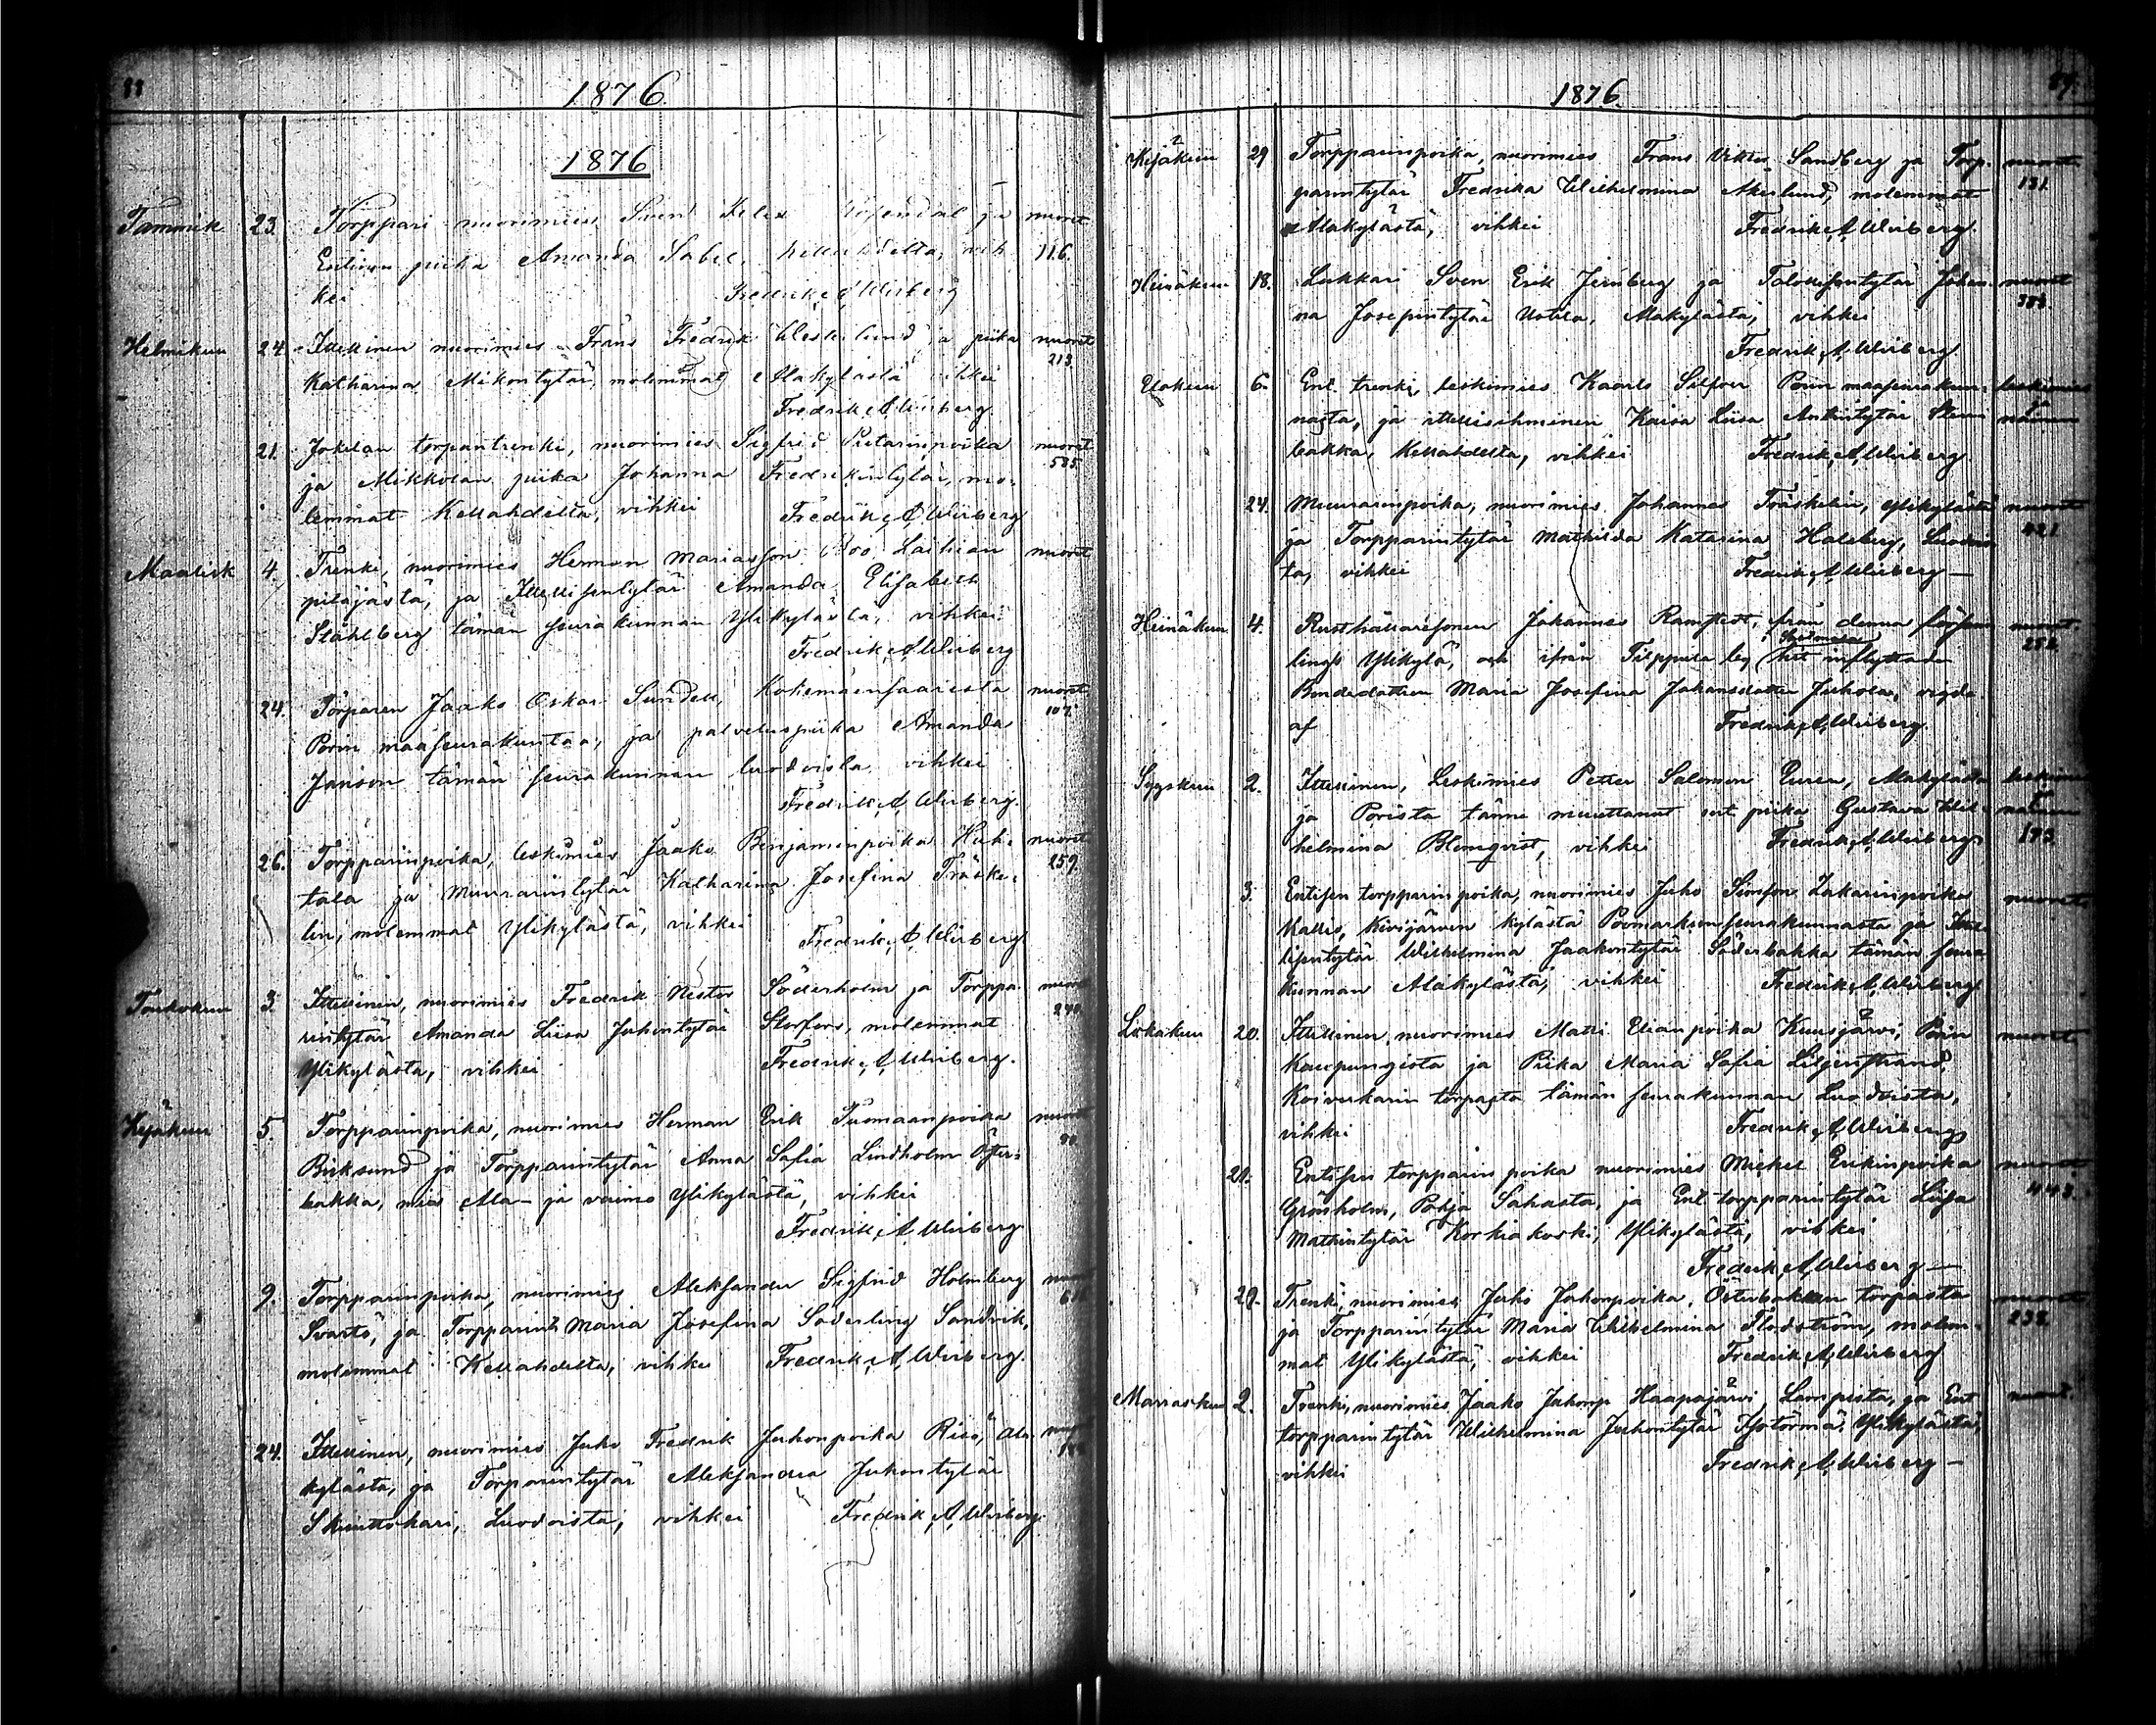 88
1876
1876
Tammik 23. Torppari nuorimies Sven Felix Rosendal ja nuoret
Entinen piika Amanda Sabel, Kellahdelta, vih 116.
kei Fredrik A Wirberg
Helmikuu 24 Itsellinen nuorimies Frans Fredrik Westerlund ja piika nuoret
213
Katharina Mikontytär, molemmat Alakylästä vihkei
Fredrik A Wirberg.
21. Jokelan torpantrenki, nuorimies Sigfrid Pietarinpoika nuoret
585.
ja Mikkolan piika Johanna Fredrikintytär, mo-
lemmat Kellahdelta, vihkei Fredrik A Wirberg
Maalisk 4. Trenki, nuorimies Herman Mariasson Laihian nuoret
pitäjästä, ja Itsellisentytär Amanda Elisabeth
Ståhlberg tämän seurakunnan Ylikylästä, vihkei
Fredrik A Wirberg
24. Torparen Jaako Oskar Sundell, Kokemäensaaresta nuoret
107.
Porin maaseurakuntaa, ja palveluspiika Amanda
Janson tämän seurakunnan Luodoista vihkei
Fredrik A Wirberg.
26. Torpparinpoika, leskimies Jaako Benjaminpoika Huh- nuoret
259.
tala ja Muurarintytär Katharina Josefina Träske-
lin, molemmat Ylikylästä, vihkei
Fredrik A Wirberg
Toukokuu 3. Itsellinen, nuorimies Fredrik Nestor Söderholm ja Torppa- nuoret
240.
rintytär Amanda Liisa Juhontytär Storfors, molemmat
Ylikylästä, vihkei Fredrik A Wirberg.
Kesäkuu 5. Torpparinpoika, nuorimies Herman Erik Tuomaanpoika nuoret
Birksund ja Torpparintytär Anna Sofia Lindholm Öster-
bakka, mies Ala- ja vaimo Ylikylästä, vihkei
Fredrik A Wirberg
9. Torpparinpoika, nuorimies Aleksander Sigfrid Holmberg
Svartö, ja Torpparint. Maria Josefina Söderling Sandvik,
molemmat Kellahdelta, vihkei Fredrik A Wirberg.
24. Itsellinen, nuorimies Juho Fredrik Juhonpoika Risö, Ala-
kylästä, ja Torparintytär Aleksandra Juhontytär
Skuuttokari, Luodoista, vihkei Fredrik A Wirberg.
1876
89.
Kesäkuu 29 Torpparinpoika, nuorimies Frans Viktor Sandberg ja Torp- nuoret
131.
parintytär Fredrika Wilhelmina Åkerlund, molemmat
Alakylästä, vihkei Fredrik A Wirberg.
Heinäkuu 18. Lukkari Sven Erik Jernberg ja Talollisentytär Johan- nuoret
na Josepintytär Uotila, Alakylästä, vihkei
Fredrik A Wirberg
Elokuu 6. Ent. trenki, leskimies Kaarlo Silfver Porin maaseurakun- leskimies
ja
nasta, ja itsellisihminen Kaisa Liisa Antintytär Sten- nainen
bakka, Kellahdelta, vihkei Fredrik A Wirberg
24. Muurarinpoika, nuorimies Johannes Träskelin, Ylikylästä nuoret
421.
ja Torpparintytär Mathilda Katarina Holmberg, Luodois-
ta, vihkei Fredrik A Wirberg
Heinäkuu 4. Rusthållaresonen Johannes Ramstedt, från denna församl- nuoret
252.
lings Ylikylä, och ifrån Filppula by hit inflyttade
Bondedottren Maria Josefina Johansdotter Juhola, vigde
af Fredrik A Wirberg.
Syyskuu 2. Itsellinen, Leskimies Petter Salomon Buren, Alakylästä leskimies
ja
ja Porista tänne muuttanut ent piika Gustava Wil- nainen
helmina Blomqvist, vihkei Fredrik A Wirberg 173
3. Entisen torpparinpoika, nuorimies Juho Simson Zakarinpoika nuoret
Kallio, Kivijärven kylästä Poomarkun seurakunnasta ja Itsel-
lisentytär Wilhelmina Jaakontytär Söderbakka tämän seura-
kunnan Alakylästä, vihkei Fredrik A Wirberg
Lokakuu 20. Itsellinen, nuorimies Matti Elianpoika Kuusjärvi, Porin nuoret
kaupungista ja Piika Maria Sofia Liljenstrand,
Koivukarin torpasta tämän seurakunnan Luodoista,
vihkei Fredrik A Wirberg
21. Entisen torpparin poika nuorimies Mickel Erikinpoika nuoret
443.
Grönholm, Pohja Sahasta, ja Ent torpparintytär Liisa
Mathintytär Korkiakoski, Ylikylästä, vihkei
Fredrik A Wirberg
29. Trenki, nuorimies Juho Juhonpoika, Österbakkan torpasta nuoret
238.
ja Torpparintytär Maria Wilhelmina Flodström, molem-
mat Ylikylästä, vihkei Fredrik A Wirberg
Marraskuu 2. Trenki, nuorimies Jaako Juhonp Haapajärvi Lampista, ja Ent nuoret
torpparintytär Wilhelmina Juhontytär Ylikylästä,
vihkei Fredrik A Wirberg